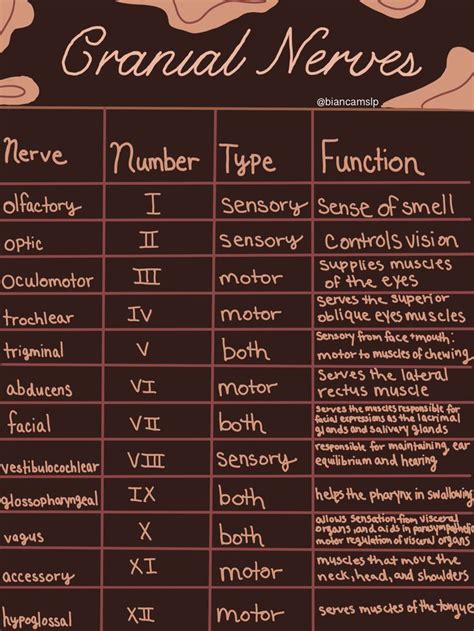 Cranial Nerves
@biancamslp
Nerve Number Type Function
olfactory I sensory sense of smell
optic II sensory controls vision
oculomotor III motor supplies muscles
of the eyes
trochlear IV motor serves the superior
oblique eyes muscles
trigminal V both sensory from face + mouth:
motor to muscles of chewing
abducens VI motor serves the lateral
rectus muscle
facial VII both serves the muscles responsible for
facial expressions as the lacrimal
glands and salivary glands
vestibulocochlear VIII sensory responsible for maintaining ear
equilibrium and hearing
glossopharyngeal IX both helps the pharynx in swallowing
vagus X both allows sensation from visceral
organs, and aids in parasympathetic
motor regulation of visceral organs
accessory XI motor muscles that move the
neck, head, and shoulders
hypoglossal XII motor serves muscles of the tongue